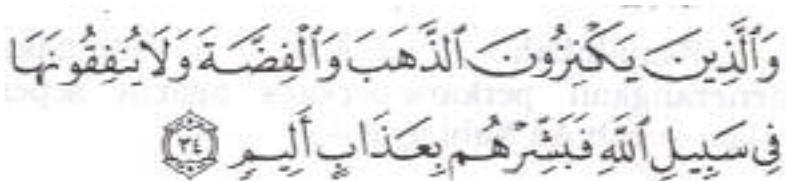 وَٱلَّذِينَ يَكْنِزُونَ ٱلذَّهَبَ وَٱلْفِضَّةَ وَلَا يُنفِقُونَهَا
فِى سَبِيلِ ٱللَّهِ فَبَشِّرْهُم بِعَذَابٍ أَلِيمٍ ٣٤